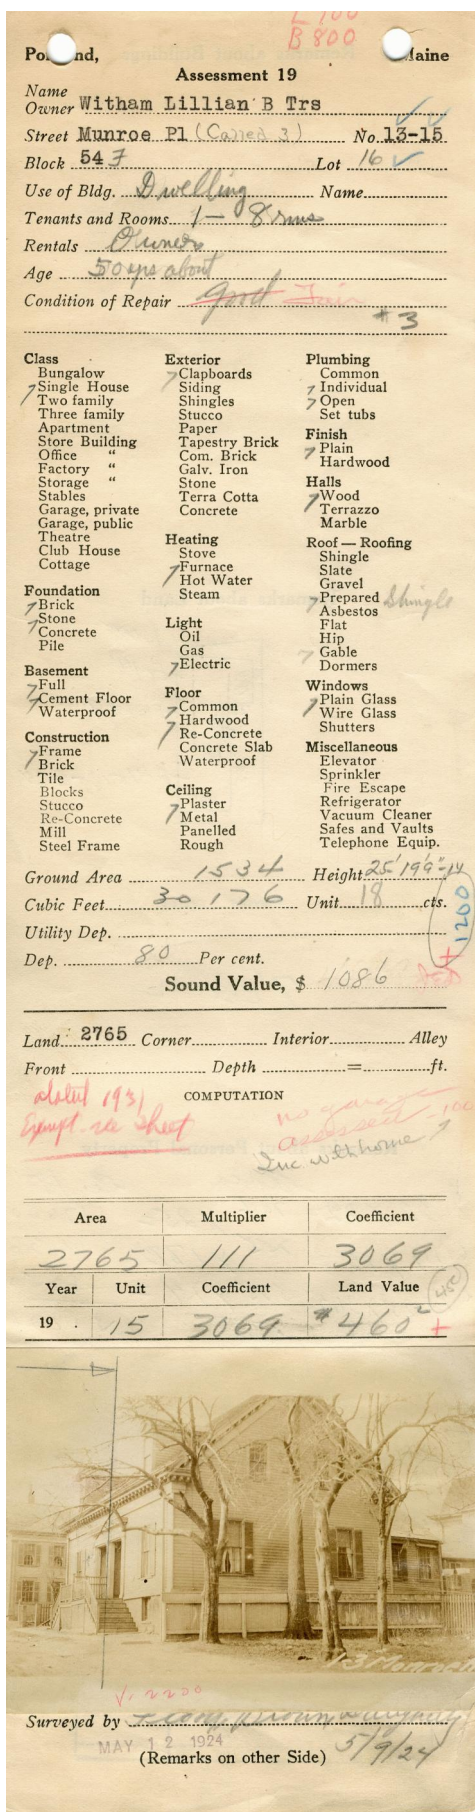 L 700
B 800
Portland, Maine
Assessment 19
Name
Owner Witham Lillian B Trs
Street Munroe Pl (Called 3) No. 13-15
Block 54 F Lot 16
Use of Bldg. Dwelling Name
Tenants and Rooms 1 - 8 rms
Rentals Owners
Age 50 yrs about
Condition of Repair good Fair
#3
Class
Bungalow
Single House
Two family
Three family
Apartment
Store Building
Office "
Factory "
Storage "
Stables
Garage, private
Garage, public
Theatre
Club House
Cottage
Foundation
Brick
Stone
Concrete
Pile
Basement
Full
Cement Floor
Waterproof
Construction
Frame
Brick
Tile
Blocks
Stucco
Re-Concrete
Mill
Steel Frame
Exterior
Clapboards
Siding
Shingles
Stucco
Paper
Tapestry Brick
Com. Brick
Galv. Iron
Stone
Terra Cotta
Concrete
Heating
Stove
Furnace
Hot Water
Steam
Light
Oil
Gas
Electric
Floor
Common
Hardwood
Re-Concrete
Concrete Slab
Waterproof
Ceiling
Plaster
Metal
Panelled
Rough
Plumbing
Common
Individual
Open
Set tubs
Finish
Plain
Hardwood
Halls
Wood
Terrazzo
Marble
Roof — Roofing
Shingle
Slate
Gravel
Prepared Shingle
Asbestos
Flat
Hip
Gable
Dormers
Windows
Plain Glass
Wire Glass
Shutters
Miscellaneous
Elevator
Sprinkler
Fire Escape
Refrigerator
Vacuum Cleaner
Safes and Vaults
Telephone Equip.
Ground Area 1534 Height 25' 19' 9"-14
Cubic Feet 30176 Unit 18 cts.
1200
Utility Dep.
Dep. 80 Per cent.
Sound Value, $ 1086
Land 2765 Corner Interior Alley
Front Depth = ft.
COMPUTATION
abated 1931
Exempt - see sheet
no garage
assessed -100
Inc. with home
Area Multiplier Coefficient
2765 111 3069
Year Unit Coefficient Land Value
450
19 . 15 3069 $460
13 Monroe
V. 2200
Surveyed by
MAY 12 1924
5/9/24
(Remarks on other Side)